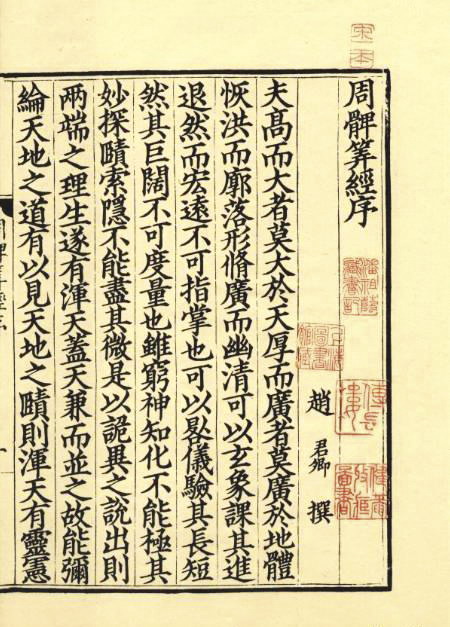 宋本
周髀筭經序
潘祖蔭藏書記
上海圖書館藏
趙君卿撰
夫髙而大者莫大於天厚而廣者莫廣於地體
恢洪而廓落形脩廣而幽清可以玄象課其進
退然而宏遠不可指掌也可以晷儀驗其長短
然其巨闊不可度量也雖窮神知化不能極其
妙探賾索隱不能盡其微是以詭異之說出則
兩端之理生遂有渾天蓋天兼而並之故能彌
綸天地之道有以見天地之賾則渾天有靈憲